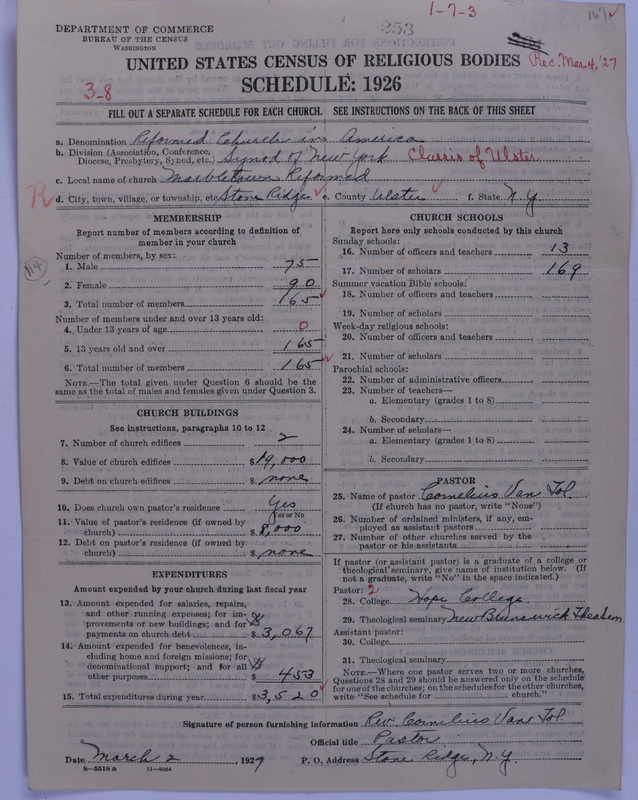 1-7-3
167
253
DEPARTMENT OF COMMERCE
BUREAU OF THE CENSUS
WASHINGTON
UNITED STATES CENSUS OF RELIGIOUS BODIES
Rec. Mar. 4, '27
SCHEDULE: 1926
3-8
FILL OUT A SEPARATE SCHEDULE FOR EACH CHURCH. SEE INSTRUCTIONS ON THE BACK OF THIS SHEET
a. Denomination Reformed Church in America
b. Division (Association, Conference, Diocese, Presbytery, Synod, etc.) Synod of New York Classis of Ulster
c. Local name of church Marbletown Reformed
d. City, town, village, or township, etc. Stone Ridge e. County Ulster f. State N.Y
R
114
MEMBERSHIP
Report number of members according to definition of
member in your church
Number of members, by sex:
1. Male 75
2. Female 90
3. Total number of members 165
Number of members under and over 13 years old:
4. Under 13 years of age 0
5. 13 years old and over 165
6. Total number of members 165
NOTE.—The total given under Question 6 should be the
same as the total of males and females given under Question 3.
CHURCH BUILDINGS
See instructions, paragraphs 10 to 12
7. Number of church edifices 2
8. Value of church edifices $19,000
9. Debt on church edifices $none
10. Does church own pastor's residence Yes
Yes or No
11. Value of pastor's residence (if owned by
church) $8,000
12. Debt on pastor's residence (if owned by
church) $none
EXPENDITURES
Amount expended by church during last fiscal year
13. Amount expended for salaries, repairs,
and other running expenses; for im-
provements or new buildings; and for
payments on church debt $3,067
14. Amount expended for benevolences, in-
cluding home and foreign missions; for
denominational support; and for all
other purposes $453
15. Total expenditures during year $3,520
CHURCH SCHOOLS
Report here only schools conducted by this church
Sunday schools:
16. Number of officers and teachers 13
17. Number of scholars 169
Summer vacation Bible schools:
18. Number of officers and teachers
19. Number of scholars
Week-day religious schools:
20. Number of officers and teachers
21. Number of scholars
Parochial schools:
22. Number of administrative officers
23. Number of teachers—
a. Elementary (grades 1 to 8)
b. Secondary
24. Number of scholars—
a. Elementary (grades 1 to 8)
b. Secondary
PASTOR
25. Name of pastor Cornelius Van Tol
(If church has no pastor, write "None")
26. Number of ordained ministers, if any, em-
ployed as assistant pastors
27. Number of other churches served by the
pastor or his assistants
If pastor (or assistant pastor) is a graduate of a college or
theological seminary, give name of institution below. (If
not a graduate, write "No" in the space indicated.)
Pastor: 2
28. College Hope College
29. Theological seminary New Brunswick Theo Sem
Assistant pastor:
30. College
31. Theological seminary
NOTE.—Where one pastor serves two or more churches,
Questions 28 and 29 should be answered only on the schedule
for one of the churches; on the schedules for the other churches,
write "See schedule for church."
Signature of person furnishing information Rev. Cornelius Van Tol
Official title Pastor
Date March 2 1927 P. O. Address Stone Ridge, N.Y.
8—5518a 11—9024